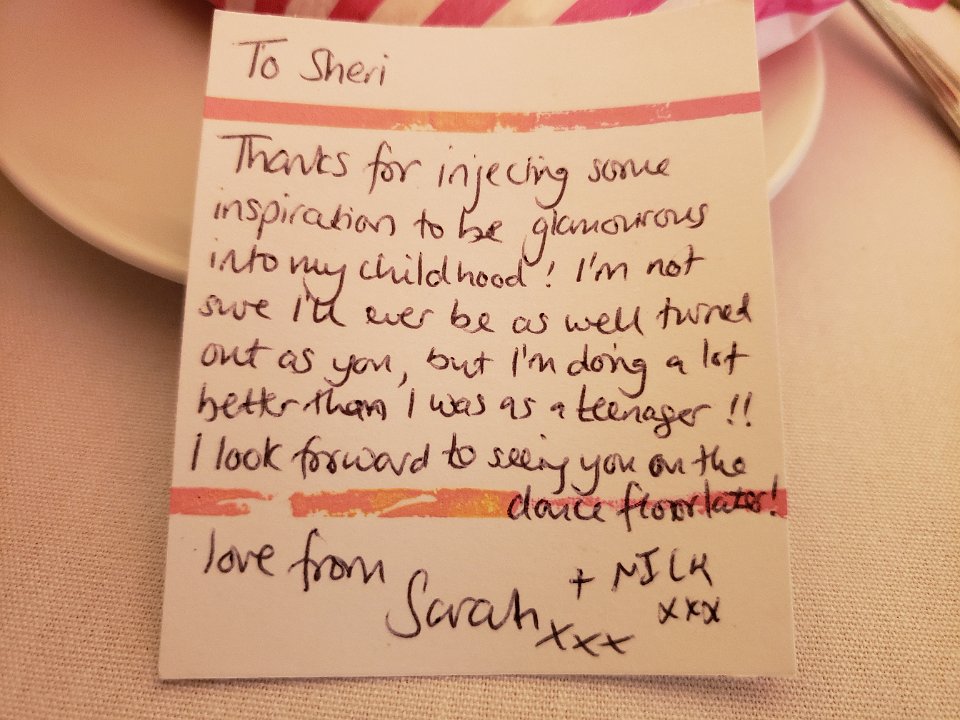 To Sheri
Thanks for injecting some
inspiration to be glamourous
into my childhood! I'm not
sure I'll ever be as well turned
out as you, but I'm doing a lot
better than I was as a teenager!!
I look forward to seeing you on the
dance floor later!
love from
Sarah xxx
+ NILK
xxx